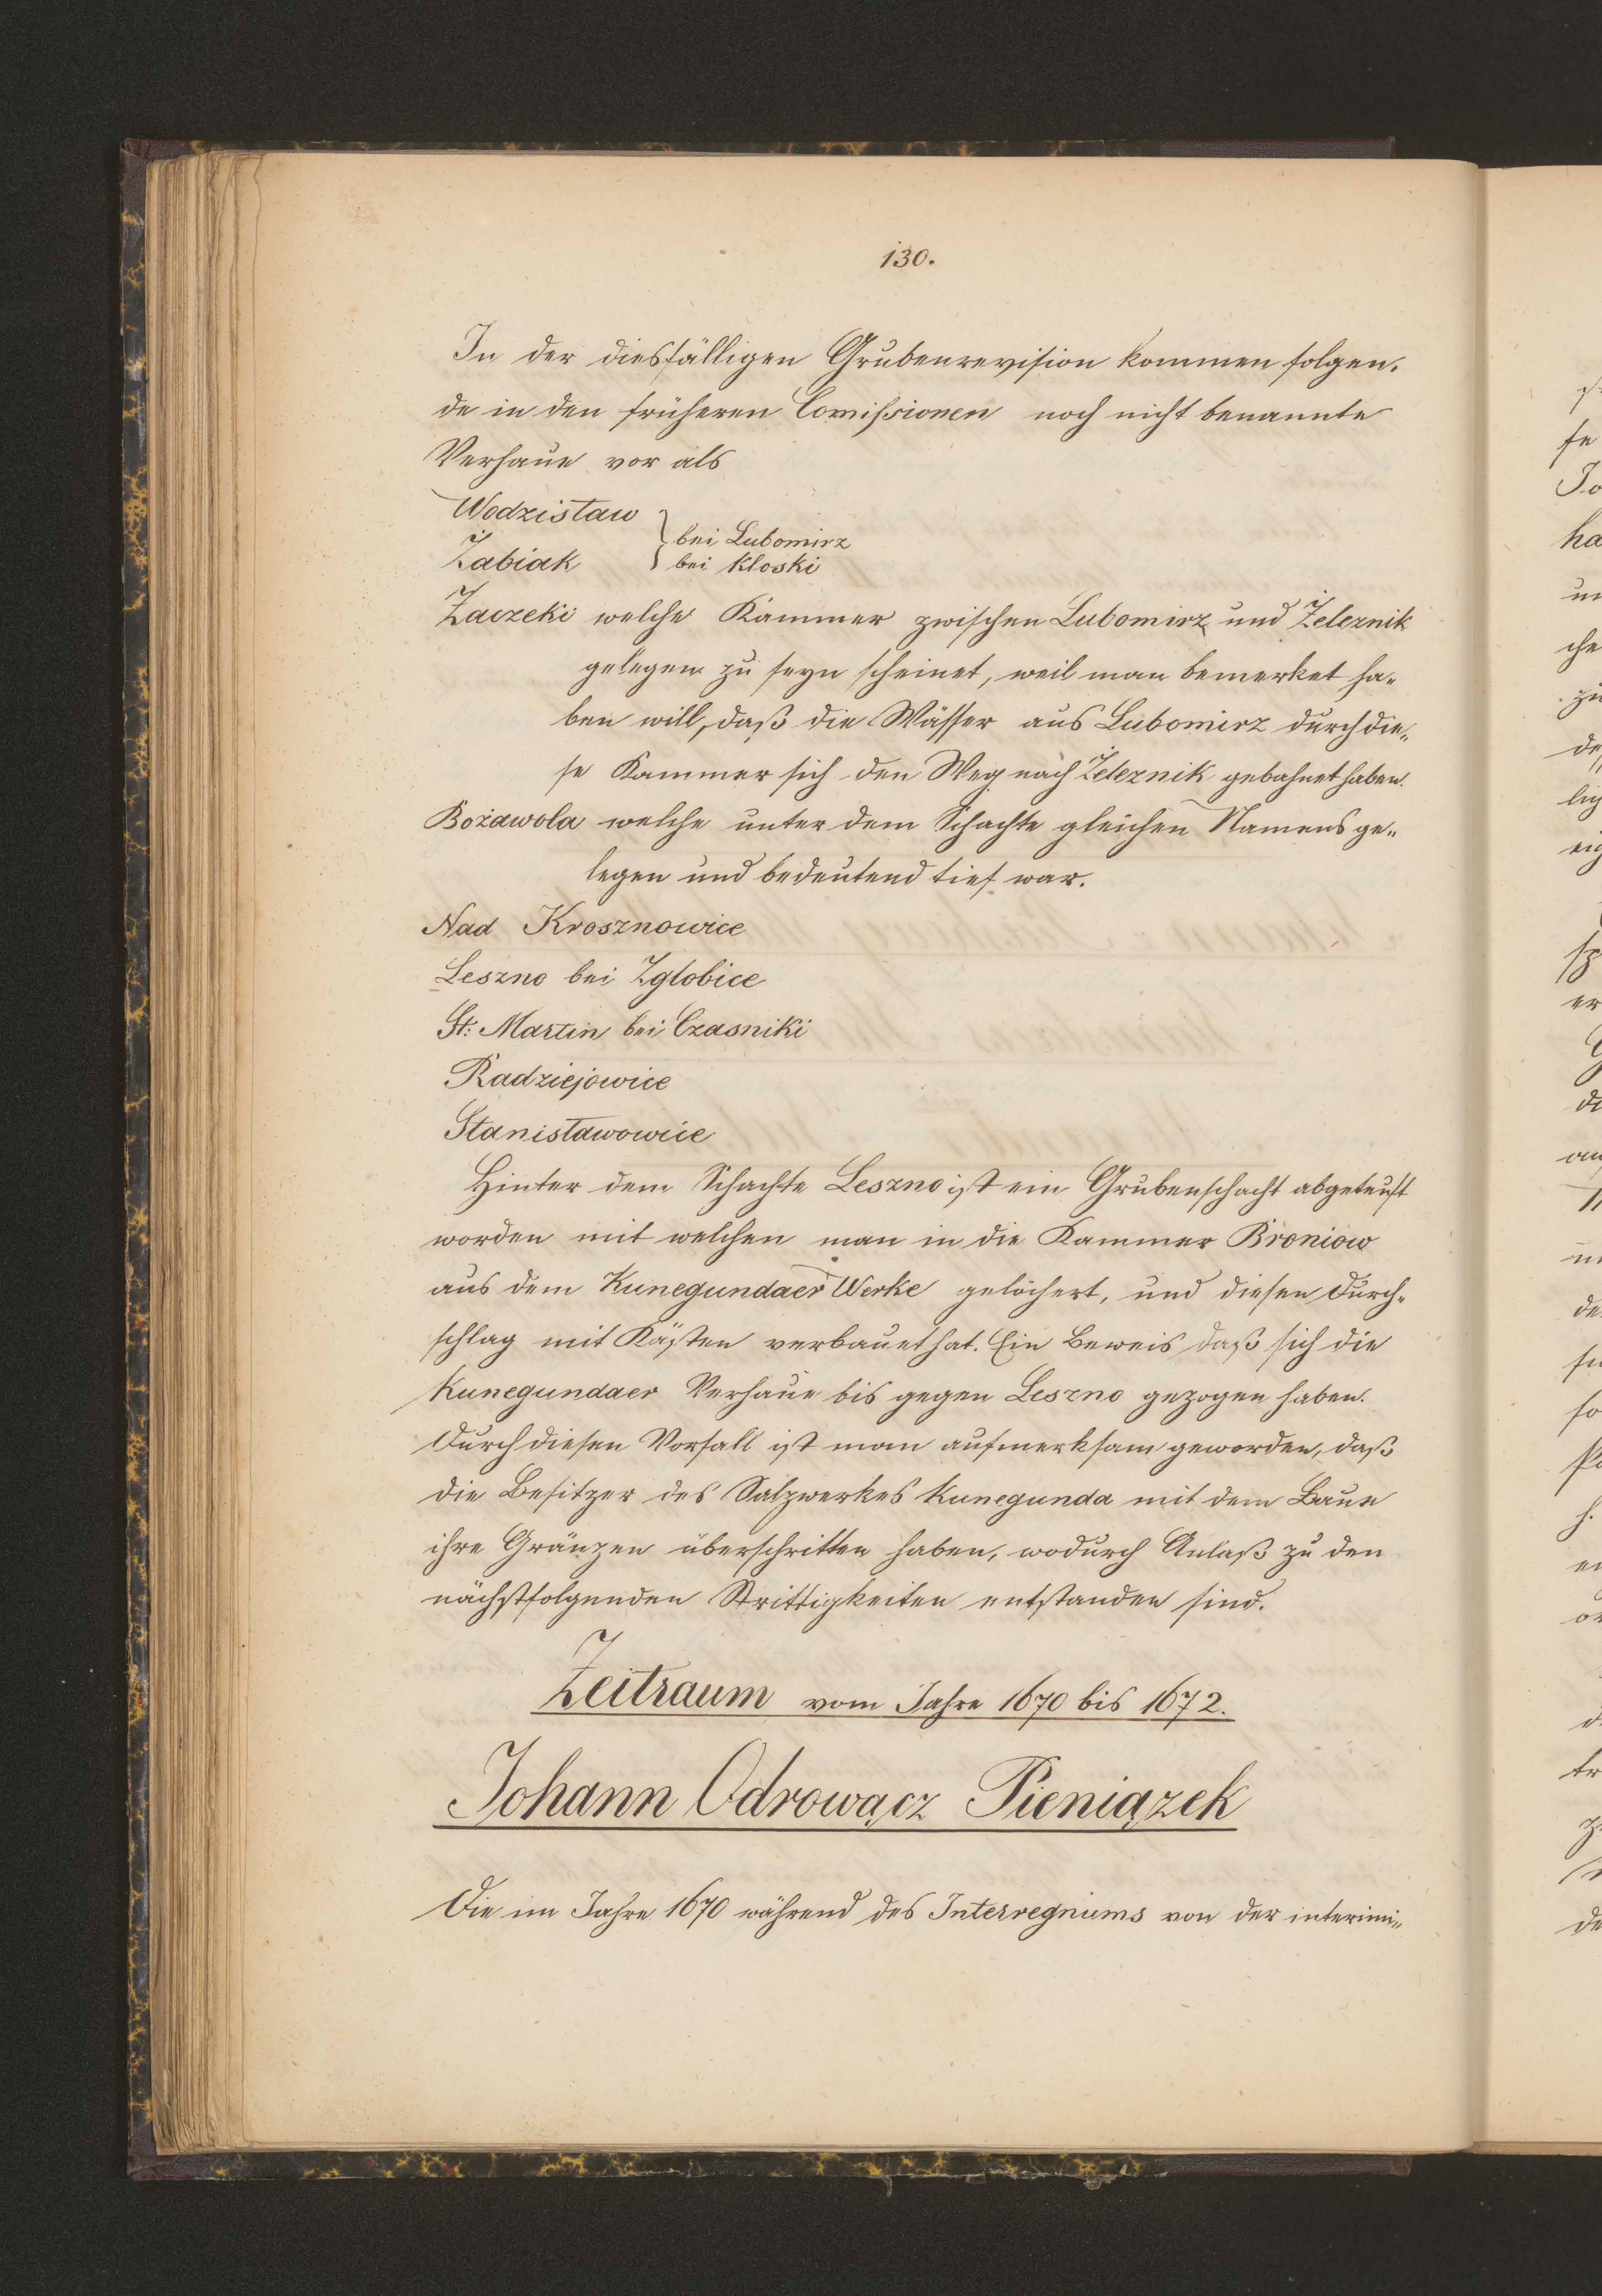 130.
In der diesfälligen Grubenrevision kommen folgen-
de in den früheren Comißionen noch nicht benannte
Verhaue vor als
Wodzisław
bei Lubomirz
Żabiak
bei Kloski
Zaczeki welche Kammer zwischen Lubomirz und Żeleznik
gelegen zu seyn scheinet, weil man bemerket ha-
ben will, daß die Wässer aus Lubomirz durch die-
se Kammer sich den Weg nach Żeleznik gebahnet haben.
Bożawola welche unter dem Schachte gleichen Namens ge-
legen und bedeutend tief war.
Nad Krosznowice
Leszno bei Zglobice
St: Martin bei Czasniki
Radziejowice
Stanisławowice
Hinter dem Schachte Leszno ist ein Grubenschacht abgeteuft
worden mit welchen man in die Kammer Broniow
aus dem Kunegundaer Werke gelöchert, und diesen Durch-
schlag mit Kästen verbauet hat. Ein Beweis daß sich die
Kunegundaer Verhaue bis gegen Leszno gezogen haben.
Durch diesen Vorfall ist man aufmerksam geworden, daß
die Besitzer des Salzwerkes Kunegunda mit dem Baue
ihre Gränzen überschritten haben, wodurch Anlaß zu den
nächstfolgenden Strittigkeiten entstanden sind.
Zeitraum vom Jahre 1670 bis 1672.
Johann Odrowącz Pieniązek
Die im Jahre 1670 während des Interregnums von der interimi-